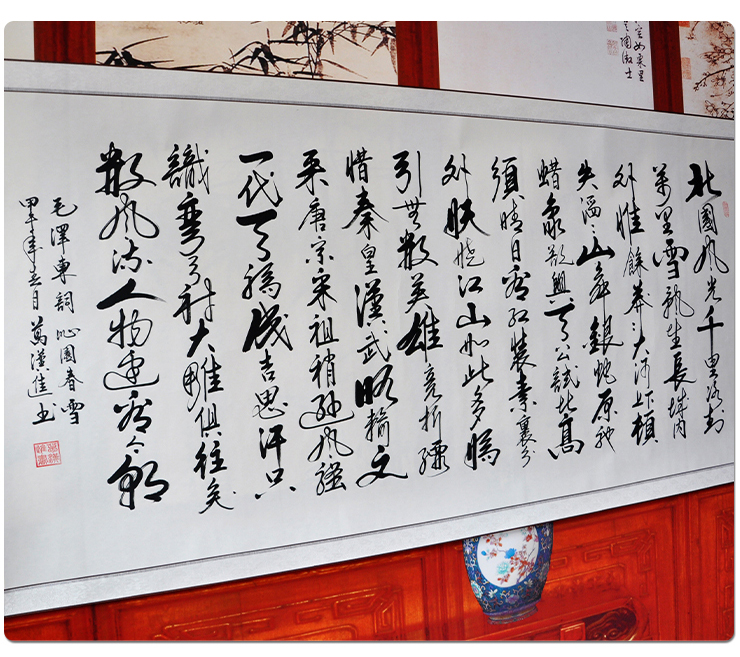 北國风光千里冰封
萬里雪飘望長城内
外惟餘莽莽大河上下頓
失滔滔山舞銀蛇原驰
蜡象欲與天公試比高
須晴日看红裝素裹分
外妖娆江山如此多嬌
引無數英雄竞折腰
惜秦皇漢武略输文
采唐宗宋祖稍遜风骚
一代天驕成吉思汗只
識彎弓射大雕俱往矣
數风流人物還看今朝
毛澤東詞沁園春雪
甲午年春月萬漢佳书